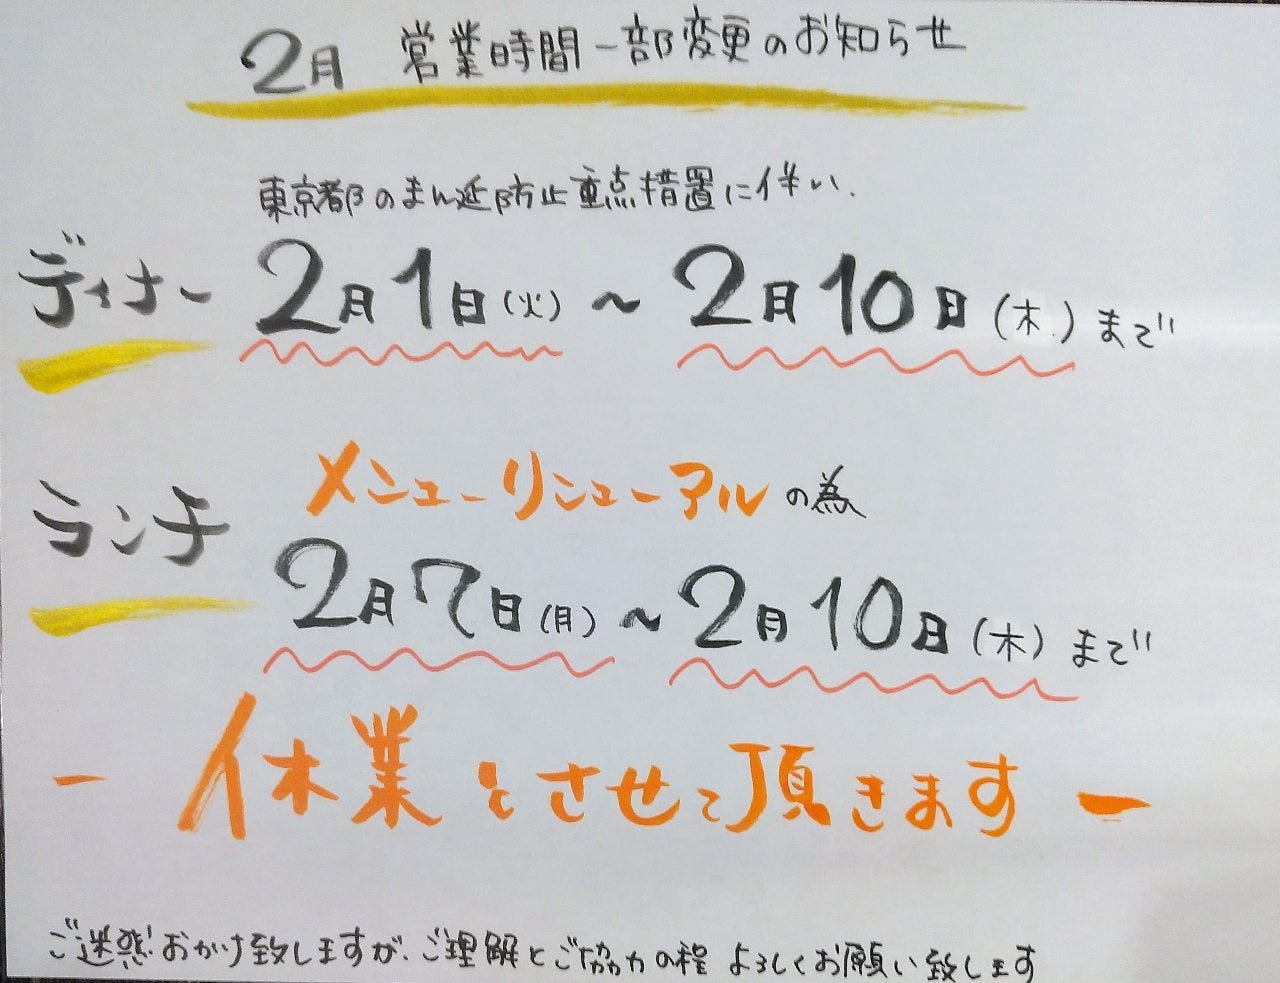 2月 営業時間一部変更のお知らせ
東京都のまん延防止重点措置に伴い、
ディナー 2月1日(火) ～ 2月10日(木)まで
メニューリニューアルの為
ランチ 2月7日(月) ～ 2月10日(木)まで
ー 休業とさせて頂きます ー
ご迷惑おかけ致しますが、ご理解とご協力の程 よろしくお願い致します